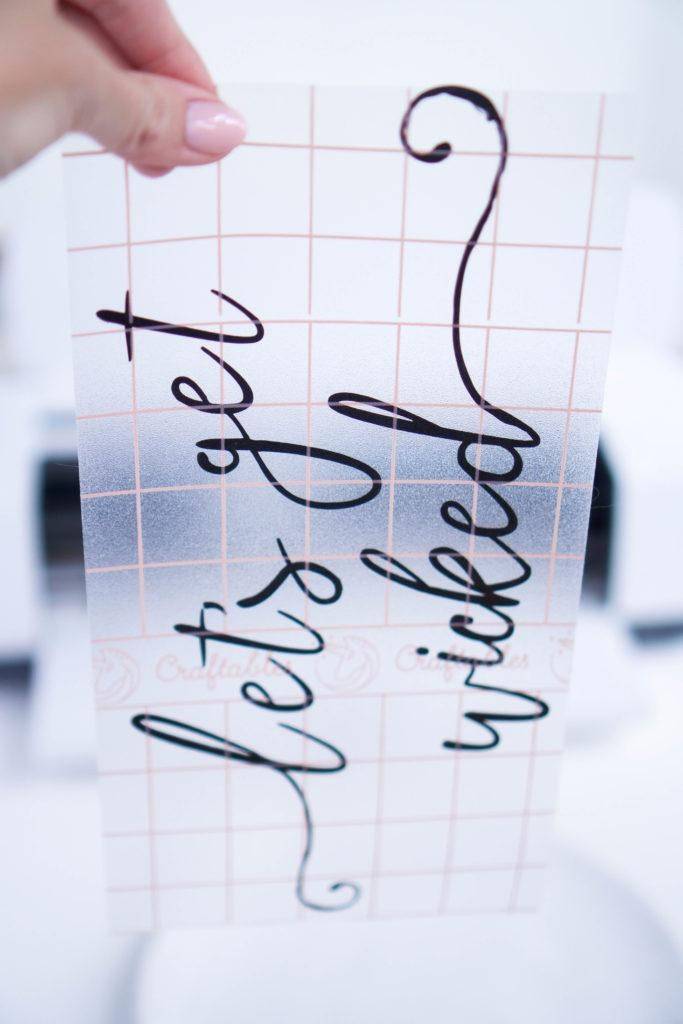 let's get
wicked
Craftables Craftables